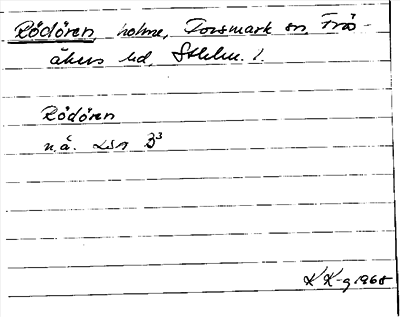 Rödören holme, Forsmark sn, Frös-
åkers hd, Sthlm. l.
Rödören
n.å. LSA B³
KK-g 1968